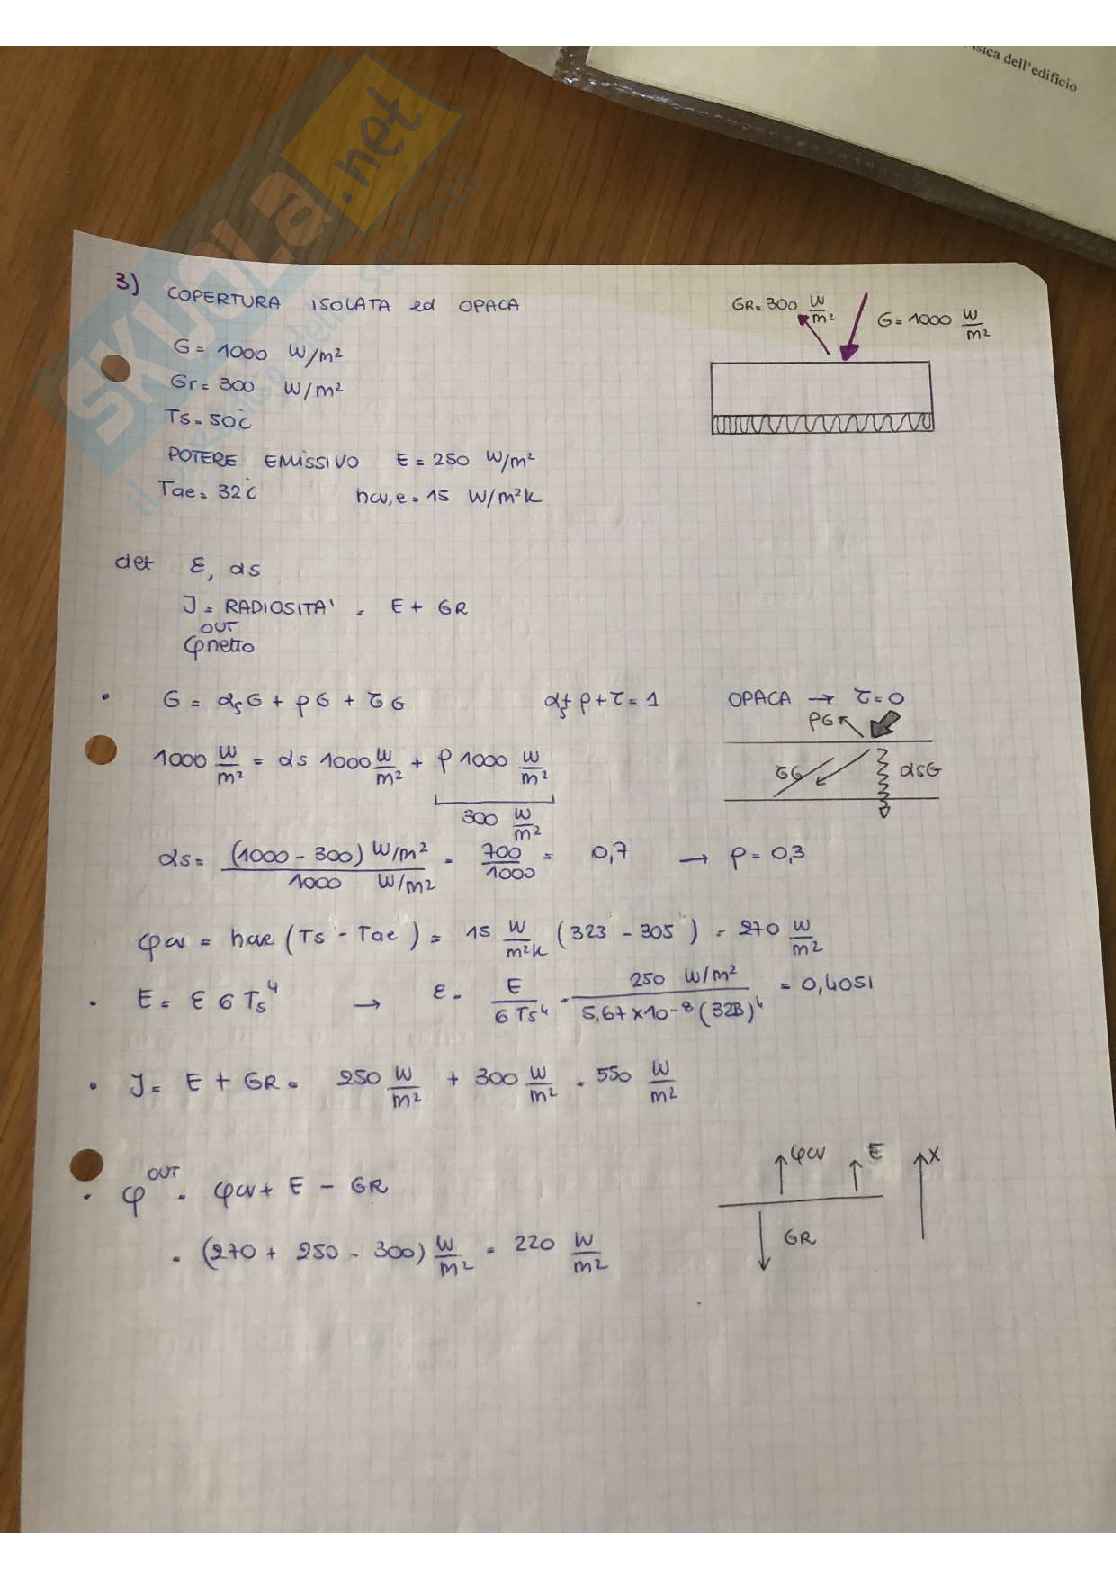 fisica dell'edificio
SKUOLA.net
3) COPERTURA ISOLATA ed OPACA
GR = 300 W/m²
G = 1000 W/m²
G = 1000 W/m²
Gr = 300 W/m²
Ts = 50°C
POTERE EMISSIVO E = 250 W/m²
Tae = 32°C hcv,e = 15 W/m²K
det ε, αs
J = RADIOSITA' = E + GR
φnetto OUT
• G = αsG + ρG + τG αs+ρ+τ=1 OPACA → τ=0
ρG
1000 W/m² = αs 1000 W/m² + ρ 1000 W/m²
τG αsG
300 W/m²
αs = (1000 - 300) W/m² / 1000 W/m² = 700/1000 = 0,7 → ρ = 0,3
φcv = hae (Ts - Tae) = 15 W/m²K (323 - 305) = 270 W/m²
• E = ε σ Ts⁴ → ε = E / σ Ts⁴ = 250 W/m² / 5,67 x 10⁻⁸ (323)⁴ = 0,4051
• J = E + GR = 250 W/m² + 300 W/m² = 550 W/m²
φcv E X
• φ OUT = φcv + E - GR
GR
= (270 + 250 - 300) W/m² = 220 W/m²